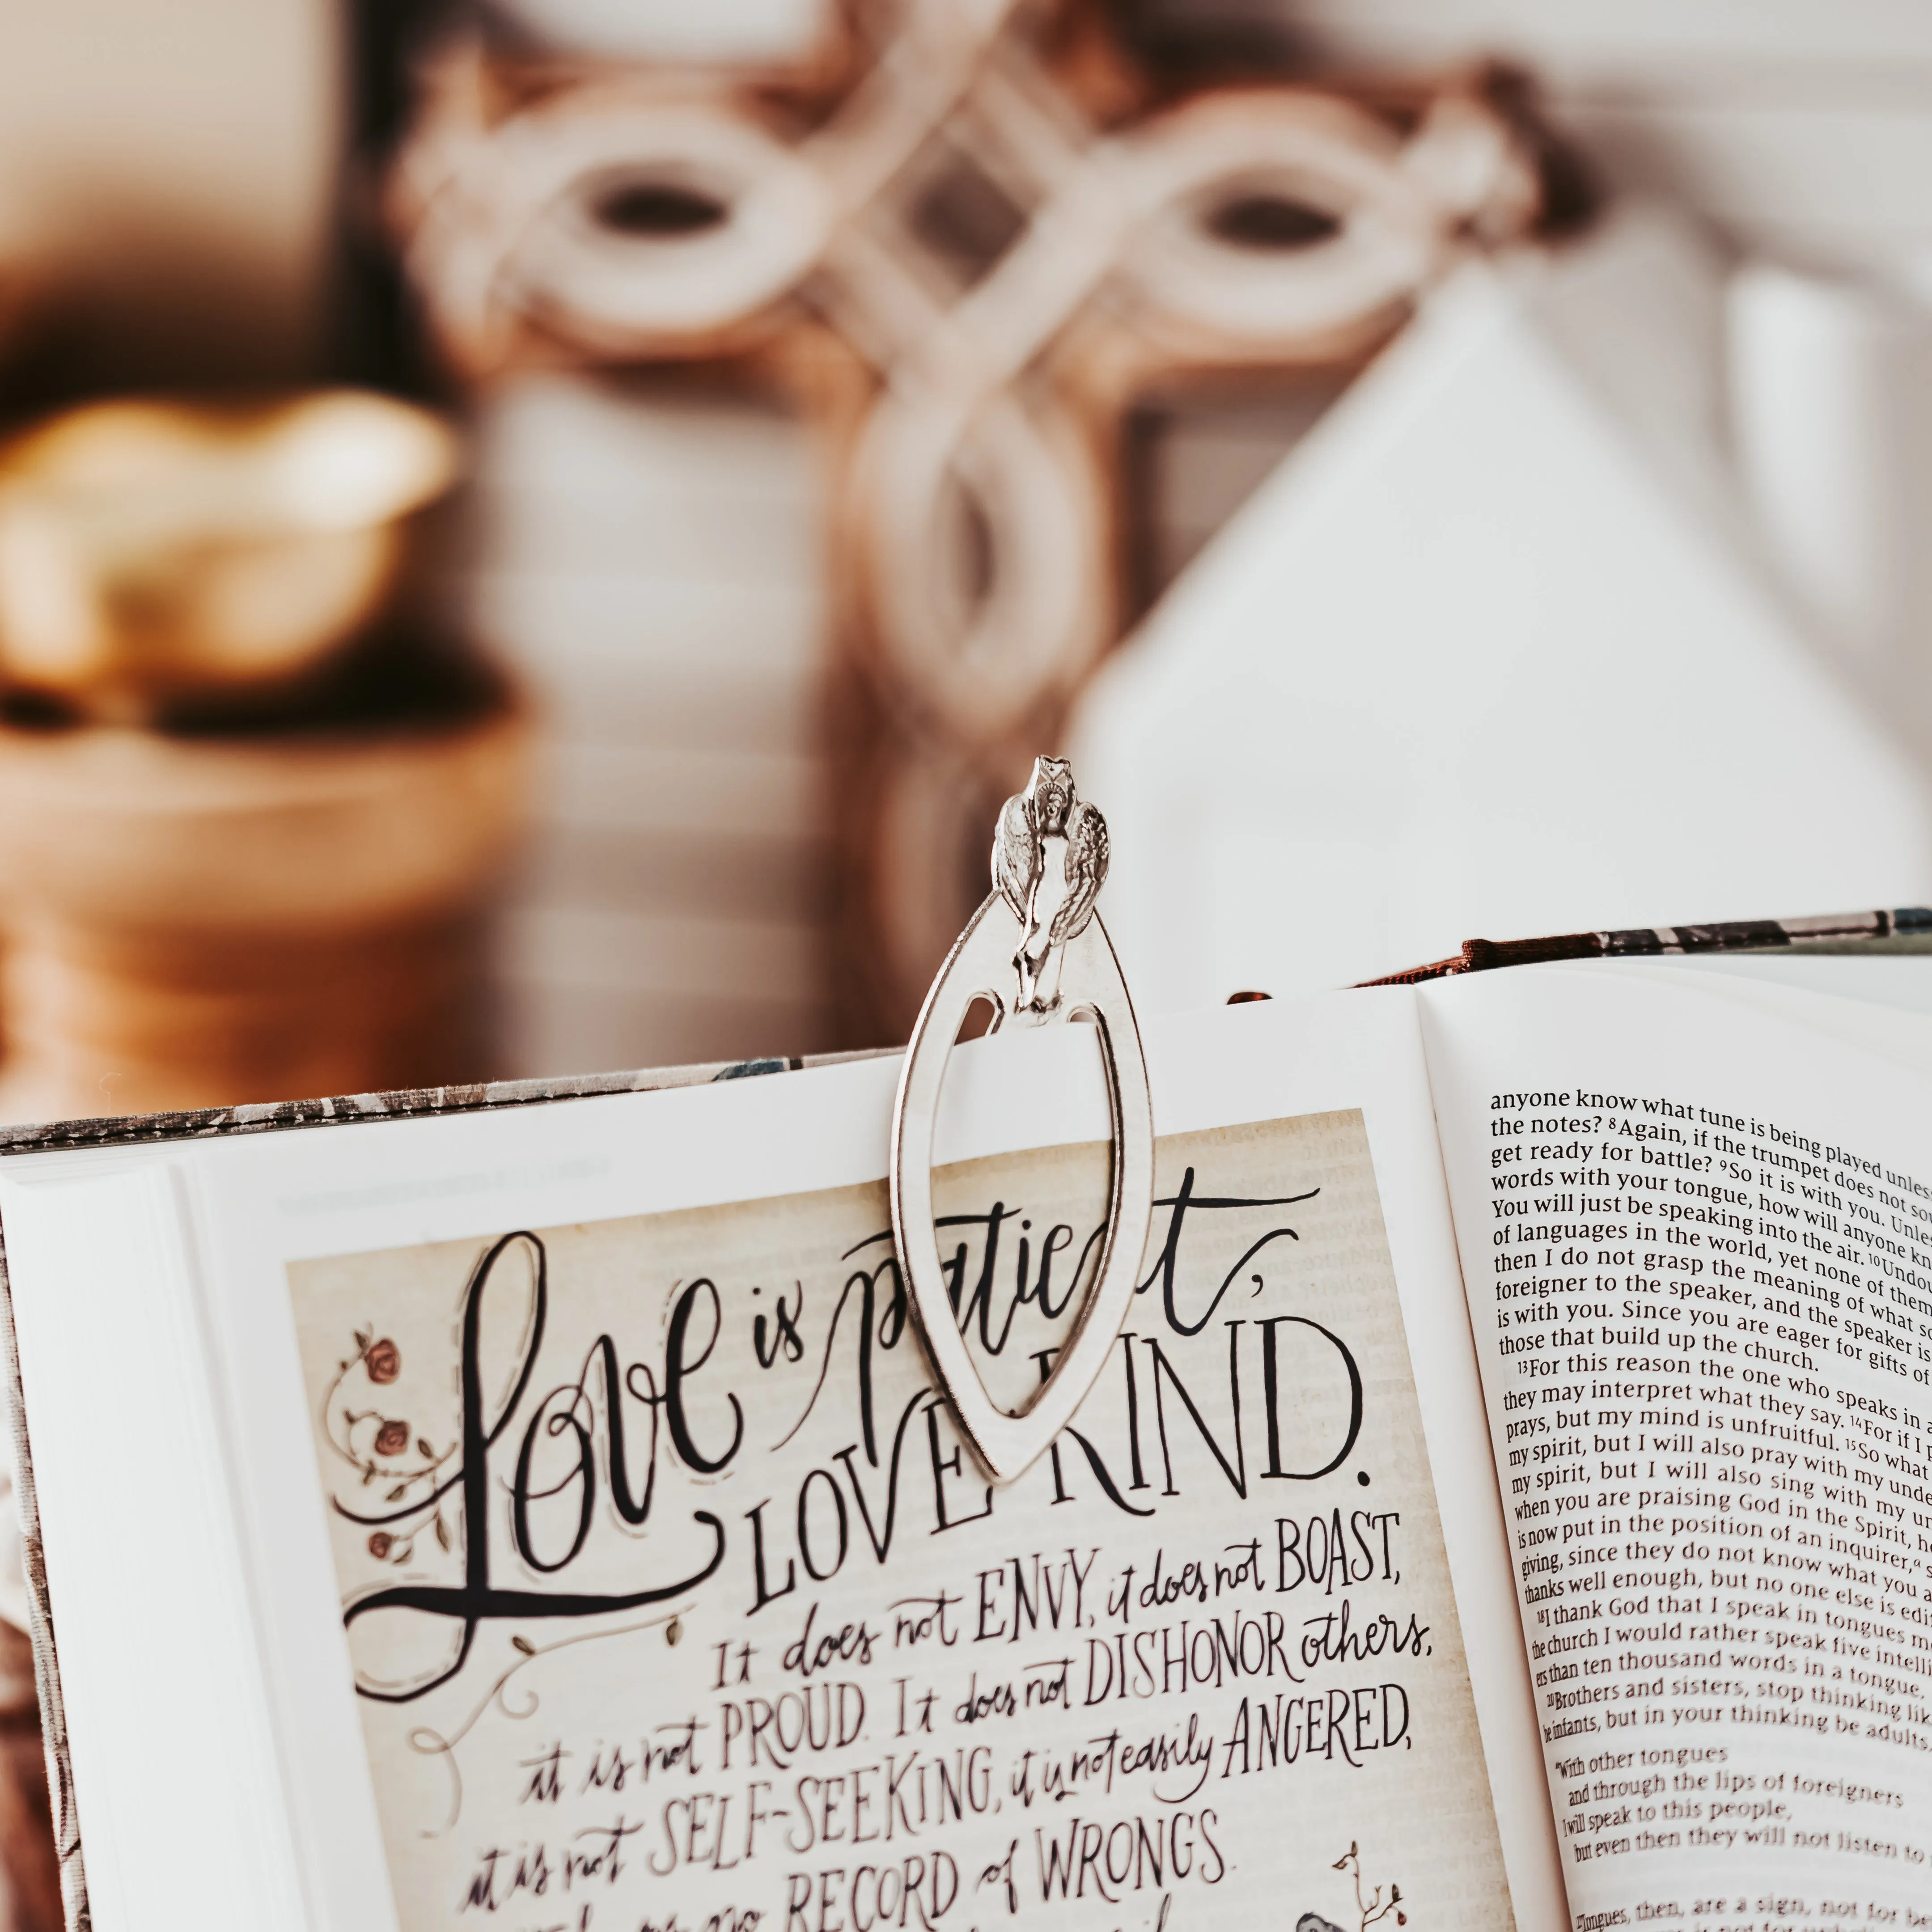 Love is patient,
LOVE KIND.
It does not ENVY, it does not BOAST,
it is not PROUD. It does not DISHONOR others,
it is not SELF-SEEKING, it is not easily ANGERED,
no RECORD of WRONGS.
anyone know what tune is being played unless
the notes? 8Again, if the trumpet does not
get ready for battle? 9So it is with you. Unless
words with your tongue, how will anyone
You will just be speaking into the air. 10
of languages in the world, yet none of them
then I do not grasp the meaning of what
foreigner to the speaker, and the speaker is
is with you. Since you are eager for gifts of
those that build up the church.
13For this reason the one who speaks in
they may interpret what they say. 14For if I
prays, but my mind is unfruitful. 15So what
my spirit, but I will also pray with my
my spirit, but I will also sing with my
when you are praising God in the Spirit,
is now put in the position of an inquirer,
giving, since they do not know what you
thanks well enough, but no one else is
18I thank God that I speak in tongues
the church I would rather speak five
than ten thousand words in a tongue.
20Brothers and sisters, stop thinking
be infants, but in your thinking be adults.
"With other tongues
and through the lips of foreigners
I will speak to this people,
but even then they will not listen to
Tongues, then, are a sign, not for